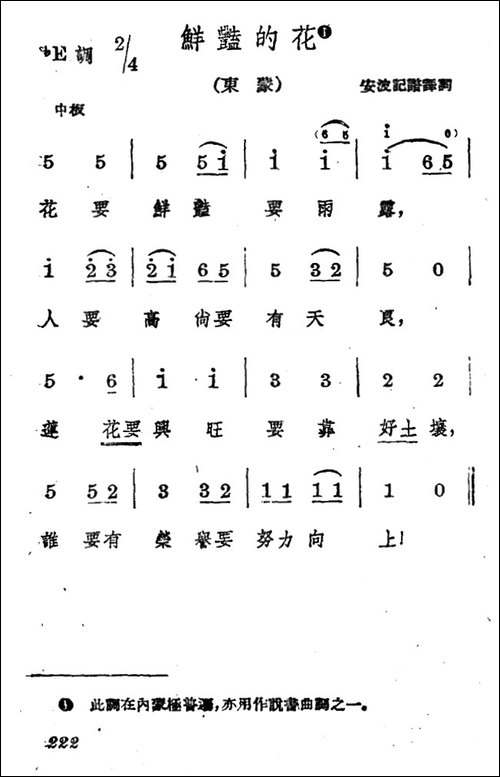 鮮豔的花❶
♭E調 2/4
(東蒙)
安波記譜譯詞
中板
(6 5 i 6)
5 5 | 5 5 i | i i | i 6 5 |
花 要 鮮 豔 要 雨 露,
i 2 3 | 2 i 6 5 | 5 3 2 | 5 0 |
人 要 高 尙要 有 天 良,
5 · 6 | i i | 3 3 | 2 2 |
蓮 花要 興 旺 要 靠 好土 壤,
5 5 2 | 3 3 2 | 1 1 1 1 | 1 0 ‖
誰 要有 榮 譽要 努力 向 上!
❶ 此調在內蒙極普遍,亦用作說書曲調之一。
222